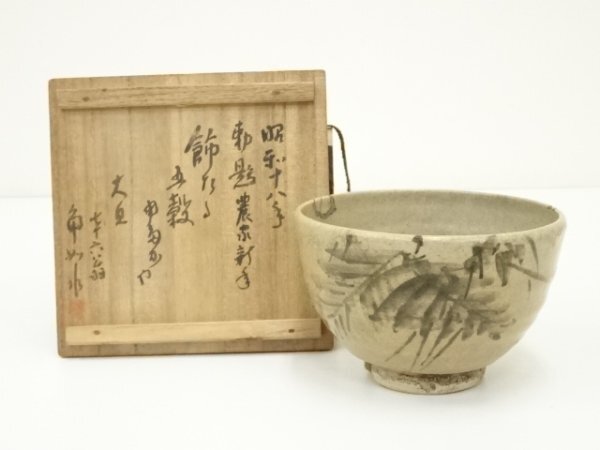 昭和十八年
勅題農家新年
飾れる
五穀
ゆたかや
大旦
七十六翁